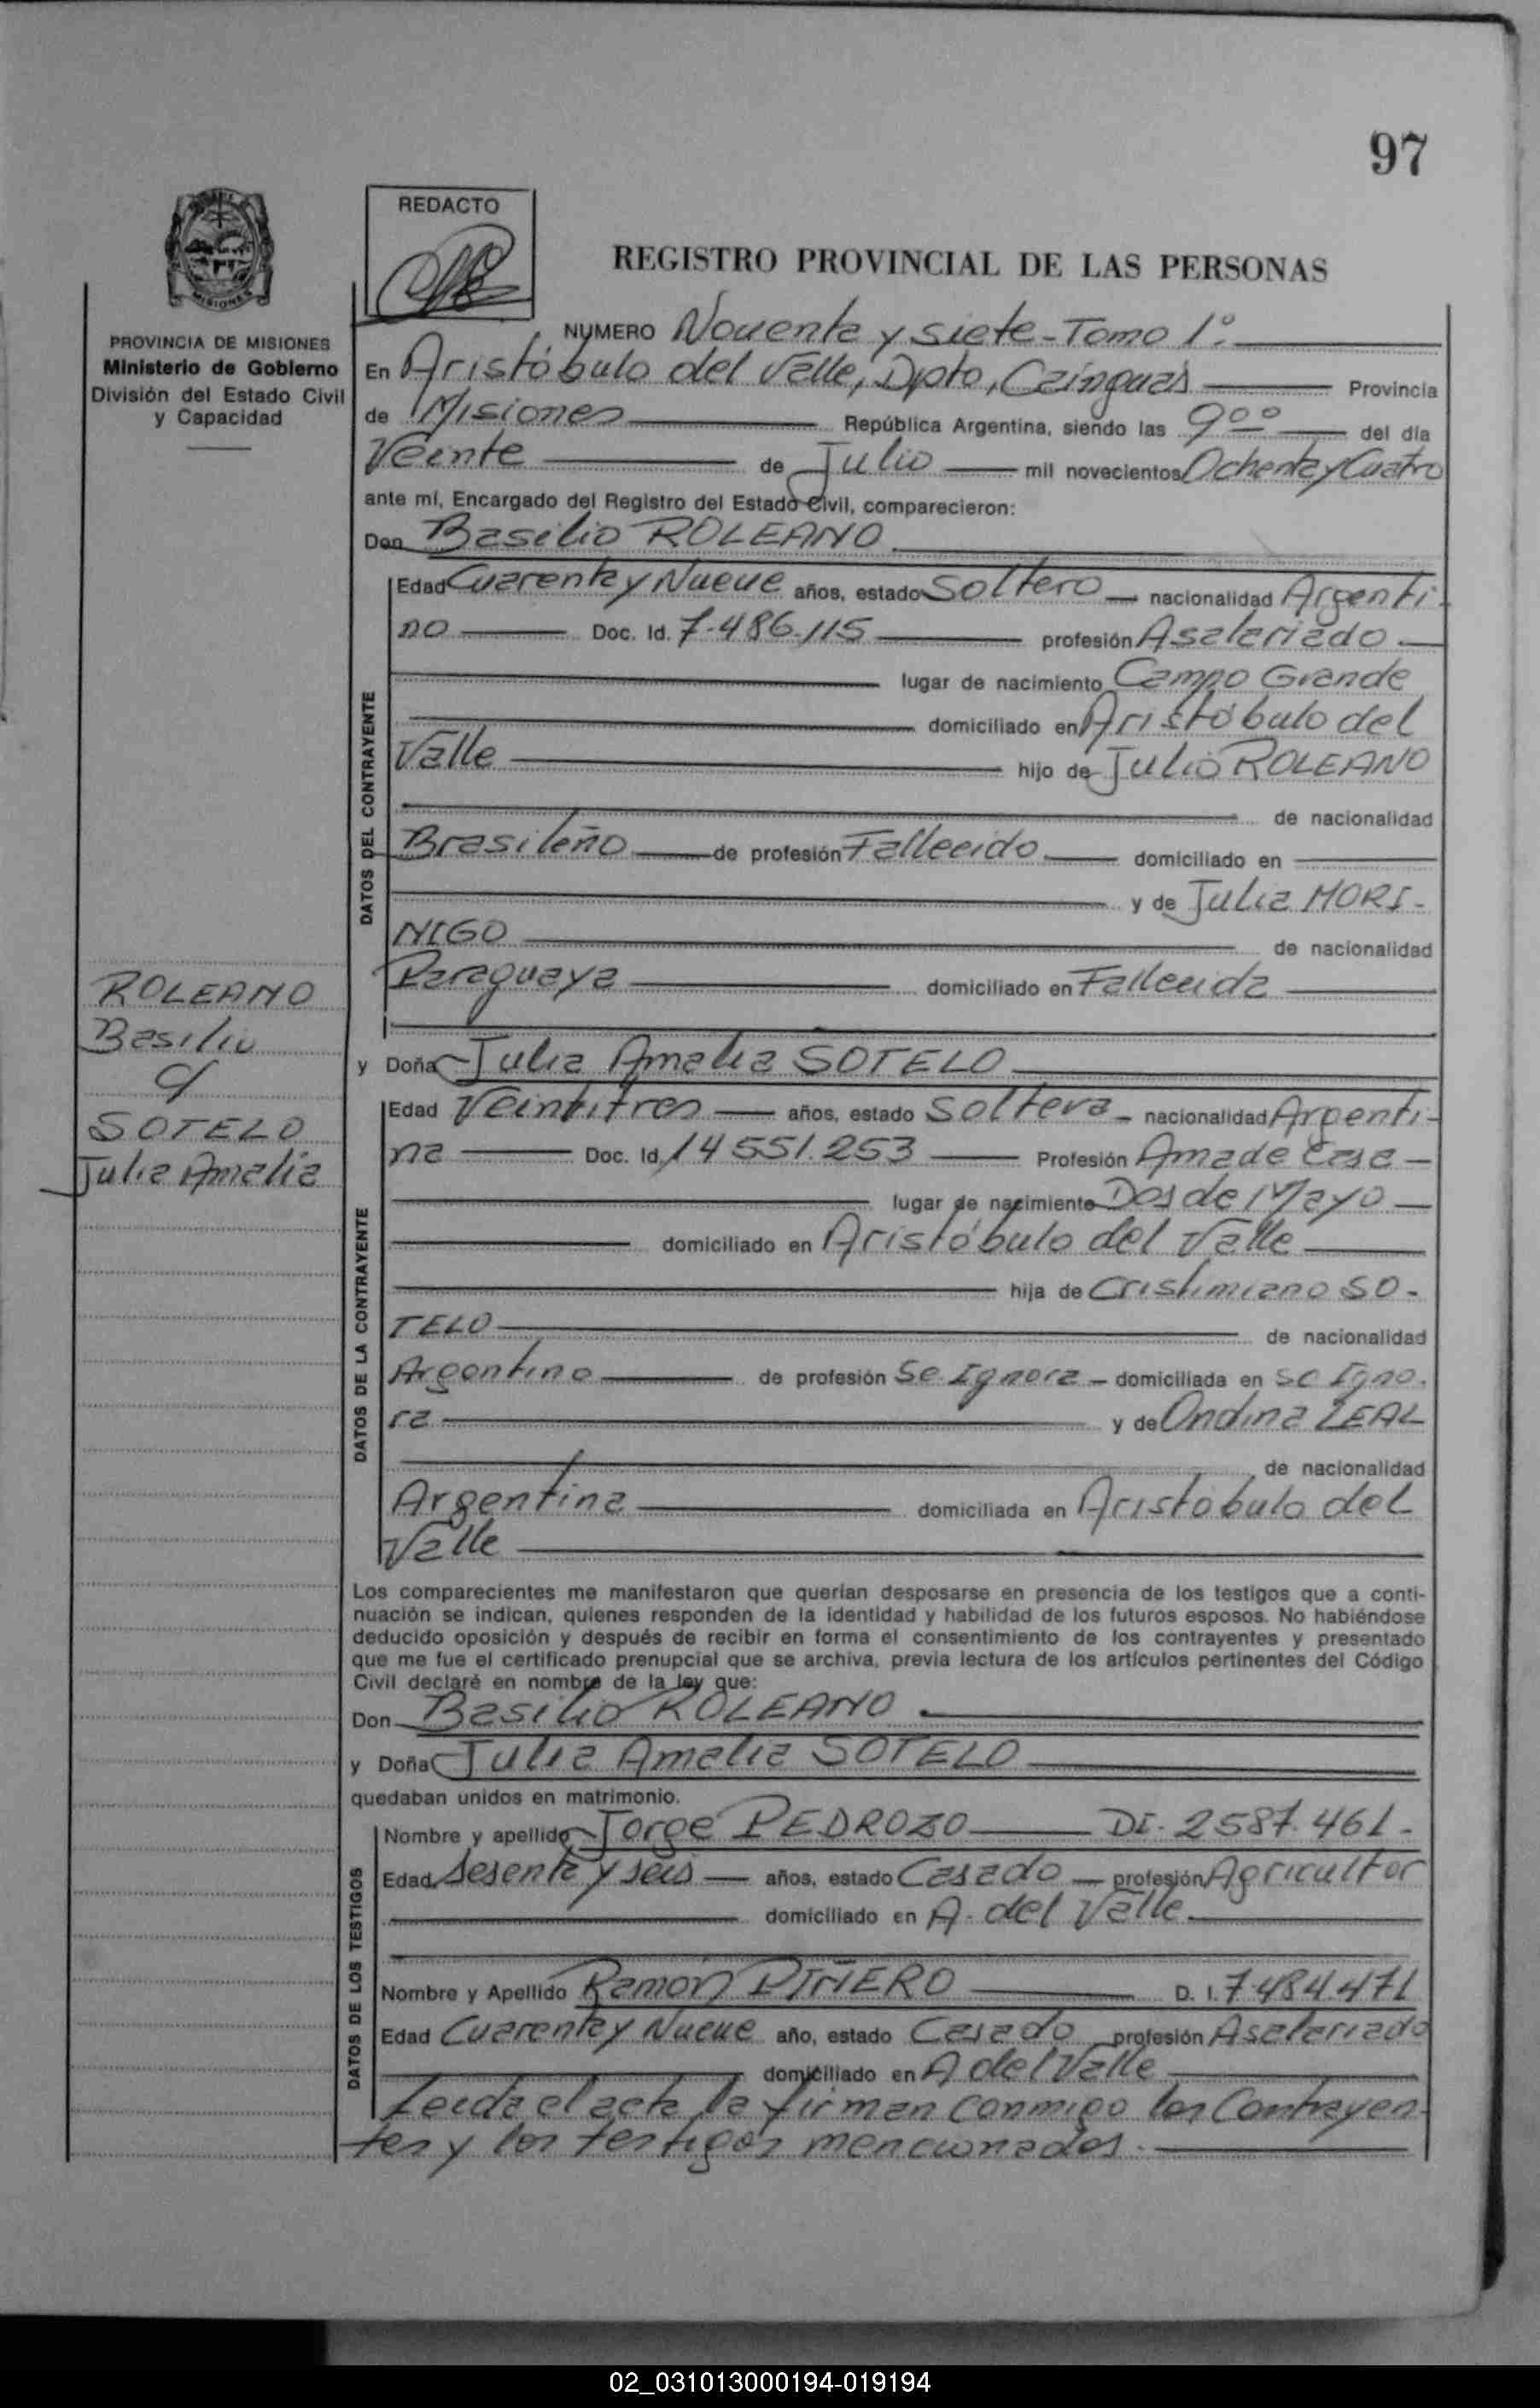 97
REDACTO
REGISTRO PROVINCIAL DE LAS PERSONAS
MISIONES
PROVINCIA DE MISIONES
Ministerio de Gobierno
División del Estado Civil
y Capacidad
ROLEANO
Basilio
c/
SOTELO
Julia Amalia
NUMERO Noventa y siete - Tomo 1º.
En Aristóbulo del Valle, Dpto, Cainguás Provincia
de Misiones República Argentina, siendo las 9 00 del día
Veinte de Julio mil novecientos Ochenta y Cuatro
ante mí, Encargado del Registro del Estado Civil, comparecieron:
Don Basilio ROLEANO
DATOS DEL CONTRAYENTE
Edad Cuarenta y Nueve años, estado Soltero nacionalidad Argenti-
no Doc. Id. 7.486.115 profesión Asalariado
lugar de nacimiento Campo Grande
domiciliado en Aristóbulo del
Valle hijo de Julio ROLEANO
de nacionalidad
Brasileño de profesión Fallecido domiciliado en
y de Julia MORI-
NIGO de nacionalidad
Paraguaya domiciliado en Fallecida
y Doña Julia Amalia SOTELO
DATOS DE LA CONTRAYENTE
Edad Veintitres años, estado Soltera - nacionalidad Argenti-
na Doc. Id. 14551.253 Profesión Ama de Casa
lugar de nacimiento Dos de Mayo
domiciliado en Aristóbulo del Valle
hija de Cristimiano SO-
TELO de nacionalidad
Argentino de profesión Se Ignora - domiciliada en se Igno-
ra y de Ondina LEAL
de nacionalidad
Argentina domiciliada en Aristobulo del
Valle
Los comparecientes me manifestaron que querían desposarse en presencia de los testigos que a conti-
nuación se indican, quienes responden de la identidad y habilidad de los futuros esposos. No habiéndose
deducido oposición y después de recibir en forma el consentimiento de los contrayentes y presentado
que me fue el certificado prenupcial que se archiva, previa lectura de los artículos pertinentes del Código
Civil declaré en nombre de la ley que:
Don Basilio ROLEANO
y Doña Julia Amalia SOTELO
quedaban unidos en matrimonio.
DATOS DE LOS TESTIGOS
Nombre y apellido Jorge PEDROZO DI. 2587.461-
Edad Sesenta y seis años, estado Casado profesión Agricultor
domiciliado en A. del Valle
Nombre y Apellido Ramón PIÑERO D. I. 7484.471
Edad Cuarenta y Nueve año, estado Casado profesión Asalariado
domiciliado en A del Valle
Leída el acta la firman conmigo los Contrayen-
tes y los testigos mencionados.
02_031013000194-019194